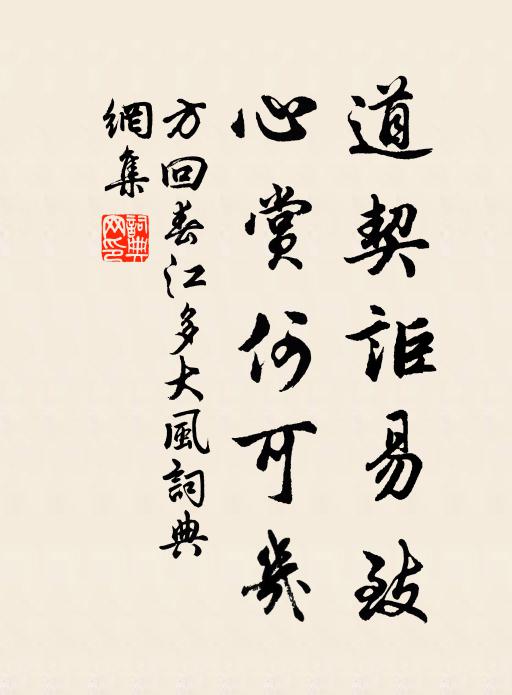 道契詎易致
心賞何可幾
方回春江多大風詞典
網集
詞典網印